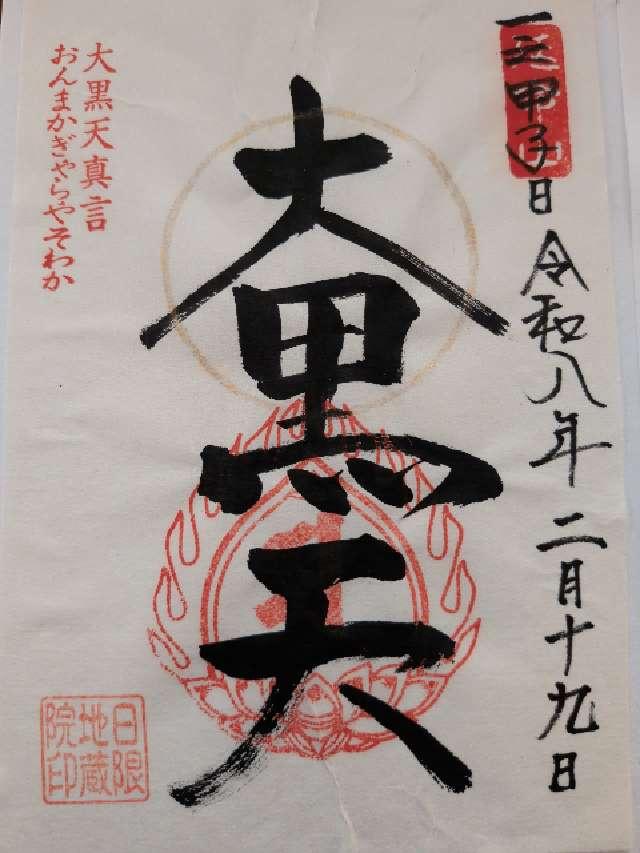 甲子日 令和八年 二月十九日
大黒天
大黒天真言
おんまかぎゃらやそわか
日限
地蔵
院印